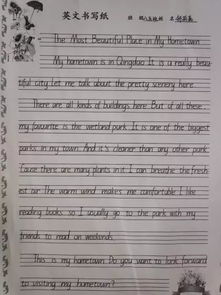 英文书写纸
班 级 名
The Most Beautiful Place in My Hometown
My hometown is in Qingdao. It is a really beau-
tiful city. let me talk about the pretty scenery here.
There are all kinds of buildings here. But of all these,
my favourite is the wetland park. It is one of the biggest
parks in my town. And it's cleaner than any other park.
'Cause there are many plants in it. I can breathe the fresh-
est air. The warm wind makes me comfortable. I like
reading books. so I usually go to the park with my
friends to read on weekends.
This is my hometown. Do you want to look forward
to visiting my hometown?